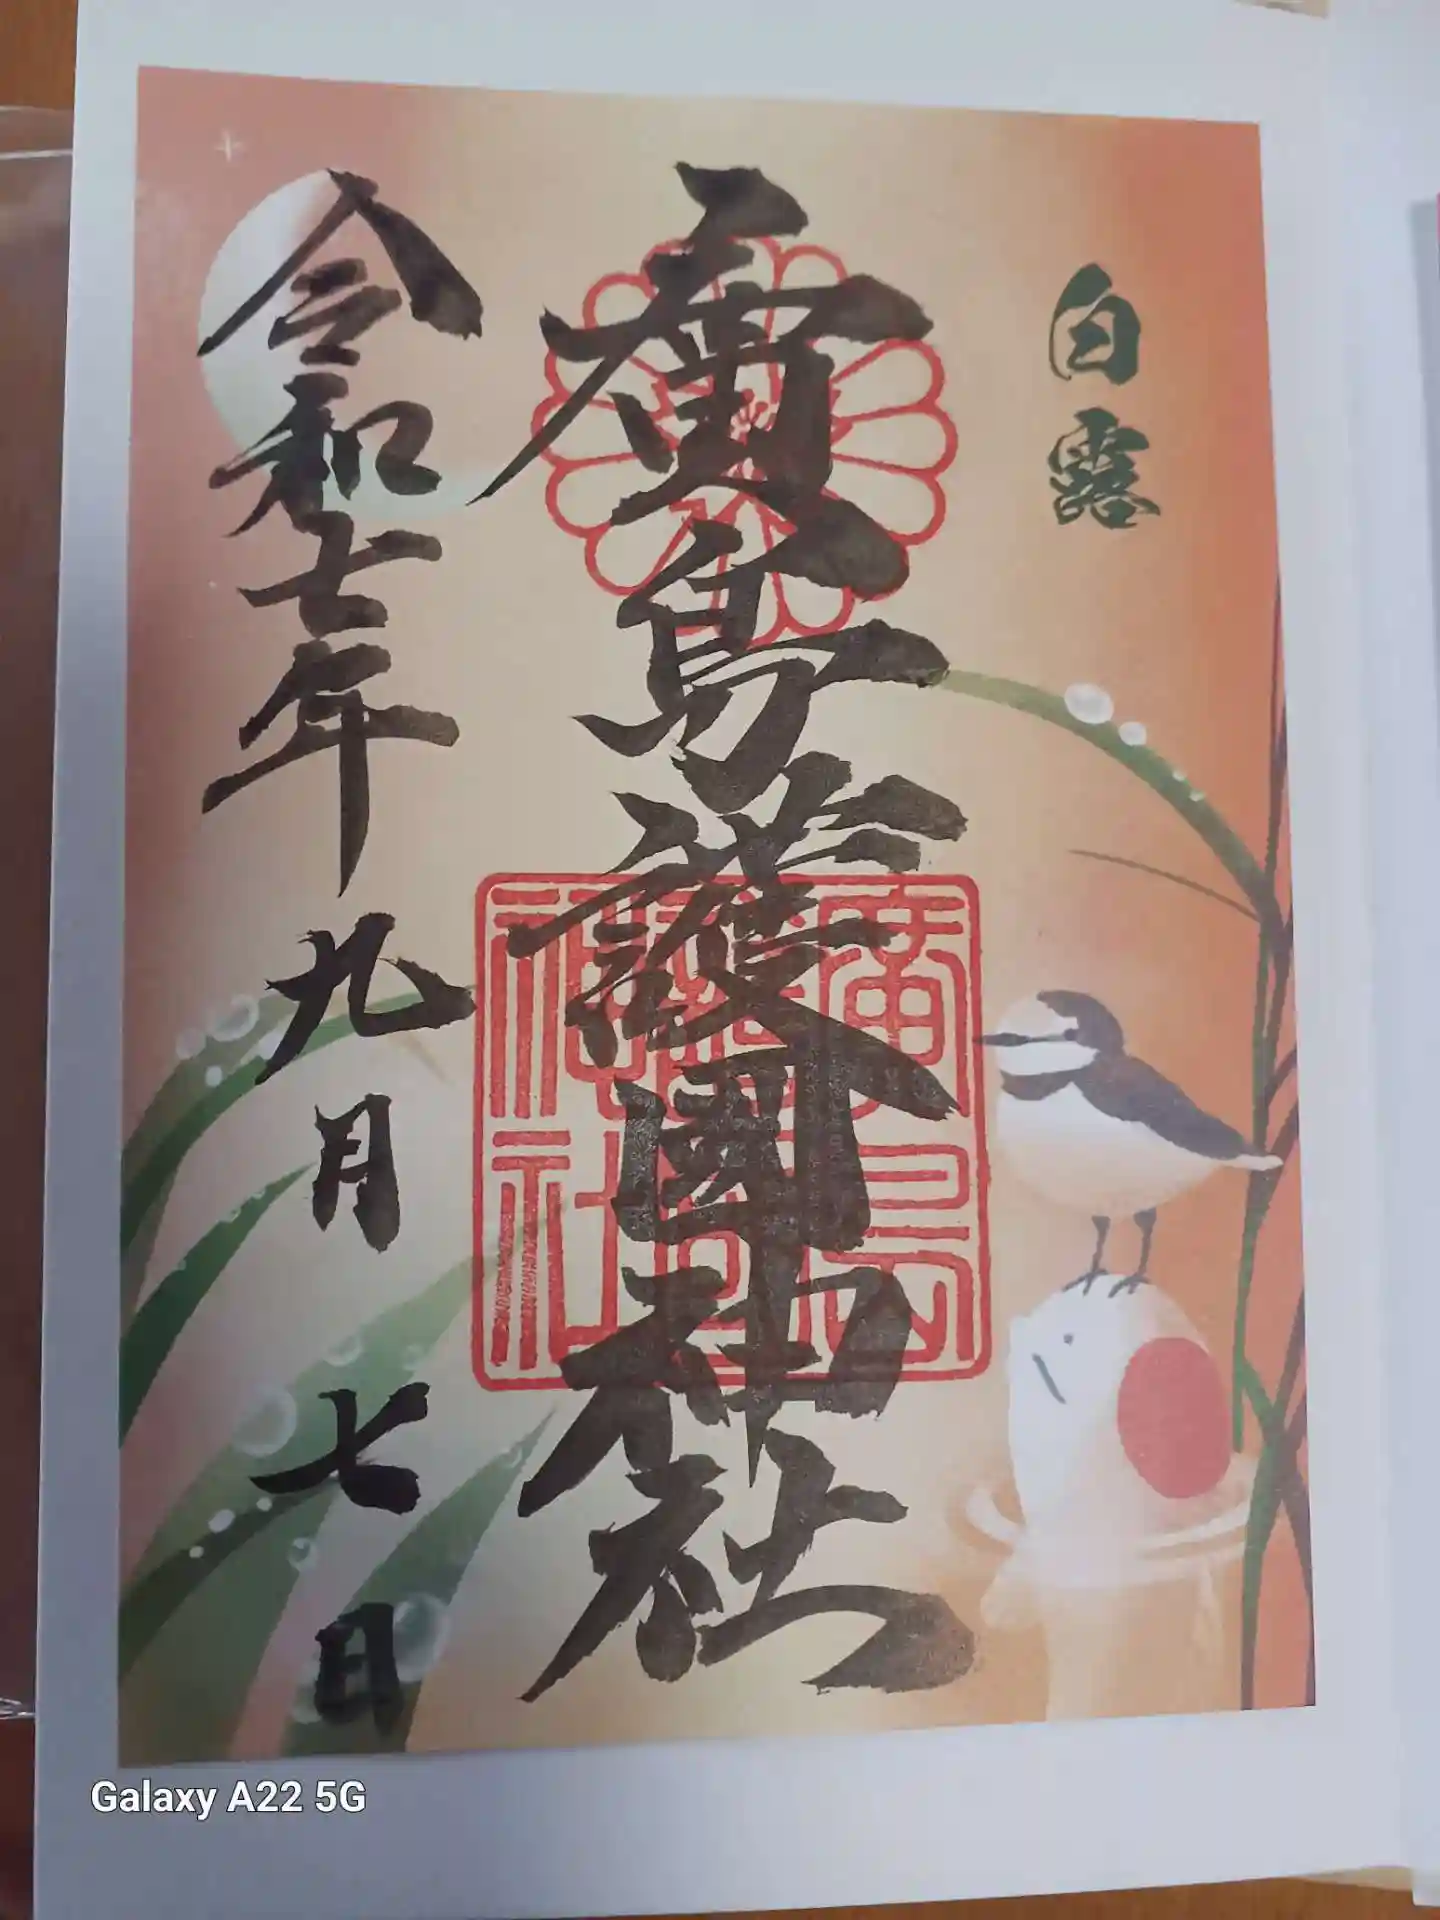 白露
廣島護國神社
令和七年九月七日
廣島護國神社
Galaxy A22 5G